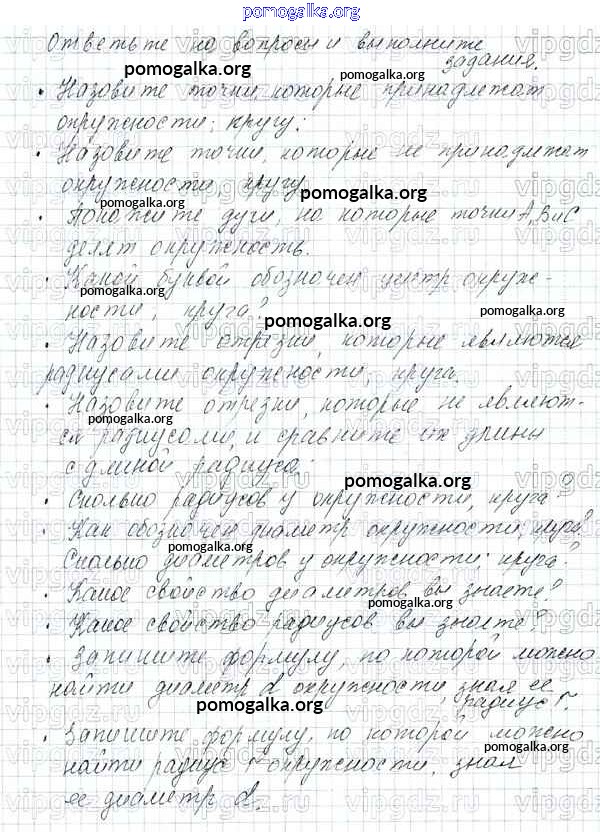 pomogalka.org
Ответьте на вопросы и выполните
задания.
pomogalka.org
• Назовите точки, которые принадлежат
окружности; кругу;
pomogalka.org
• Назовите точки, которые не принадлежат
окружности, кругу
pomogalka.org
• Покажите дуги, на которые точки А, В и С
делят окружность.
• Какой буквой обозначен центр окруж-
pomogalka.org
ности; круга?
pomogalka.org
• Назовите отрезки, которые являются
радиусами окружности; круга.
• Назовите отрезки, которые не являют-
pomogalka.org
ся радиусами, и сравните их длины
с длиной радиуса;
pomogalka.org
• Сколько радиусов у окружности, круга?
• Как обозначен диаметр окружности, круга?
pomogalka.org
Сколько диаметров у окружности; круга?
• Какое свойство диаметров вы знаете?
pomogalka.org
• Какое свойство радиусов вы знаете?
• Запишите формулу, по которой можно
pomogalka.org
найти диаметр d окружности, зная ее
радиус r.
pomogalka.org
• Запишите формулу, по которой можно
pomogalka.org
найти радиус r окружности, зная
pomogalka.org
ее диаметр d.